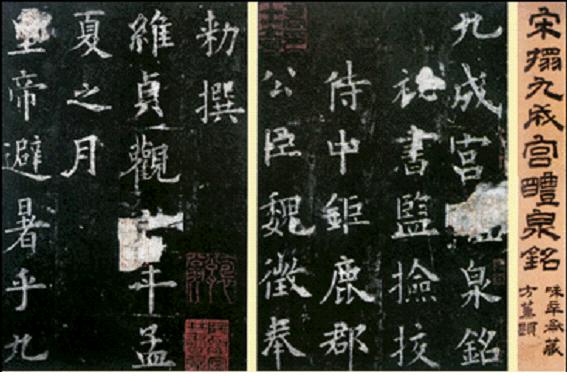 宋搨九成宮醴泉銘
藏
方薰題
九成宮泉銘
秘書監撿挍
侍中鉅鹿郡
公臣魏徵奉
勑撰
維貞觀年孟
夏之月
皇帝避暑乎九